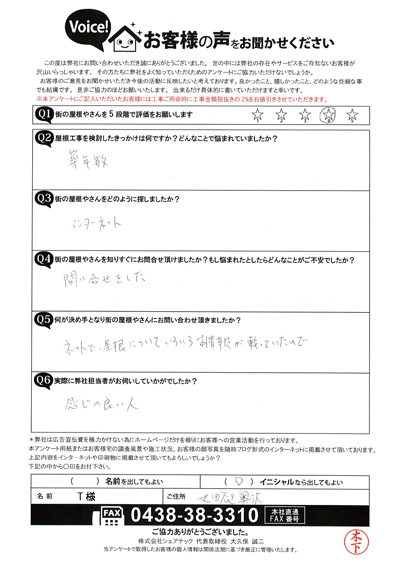 Voice!
お客様の声をお聞かせください
この度は弊社にお問い合わせいただき誠にありがとうございました。世の中には弊社の存在やサービスをご存知ないお客様が
沢山いらっしゃいます。その方たちに弊社をよく知っていただくためのアンケートにご協力いただけないでしょうか。
お客様のご意見をお聞かせいただき今後の活動に反映したいと考えております。良かったこと、嬉しかったこと、どのような些細な事
でも結構です。是非ご協力のほどお願いいたします。出来るだけ具体的に書いていただけますと幸いです。
※本アンケートにご記入いただいたお客様には工事ご用命時に工事金額税抜きの2%をお値引きさせていただきます。
Q1 街の屋根やさんを5段階で評価をお願いします
Q2 屋根工事を検討したきっかけは何ですか？どんなことで悩まれていましたか？
築年数
Q3 街の屋根やさんをどのように探しましたか？
インターネット
Q4 街の屋根やさんを知りすぐにお問合せ頂けましたか？もし悩まれたとしたらどんなことがご不安でしたか？
問い合せをした
Q5 何が決め手となり街の屋根やさんにお問い合わせ頂きましたか？
ネットで、屋根についていろいろ情報が載っていたので
Q6 実際に弊社担当者がお伺いしていかがでしたか？
感じの良い人
＊弊社は広告宣伝費を極力かけない為にホームページだけを頼りにお客様への営業活動を行っております。
本アンケート用紙またはお客様宅の調査風景や施工状況、お客様の顔写真を随時ブログ形式のインターネットに掲載させて頂いております。
上記内容をインターネットや印刷物に掲載させて頂いてもよろしいでしょうか？
下記の中から○印をお付下さい。
（　）名前を出してもよい （○）イニシャルなら出してもよい
名前 T様 ご住所 世田谷区奥沢
FAX 0438-38-3310 本社直通 FAX番号
ご協力ありがとうございました。
株式会社シェアテック 代表取締役 大久保 誠二
当アンケートで取得したお客様の個人情報は関係法規に基づき厳正に管理いたします。
木下